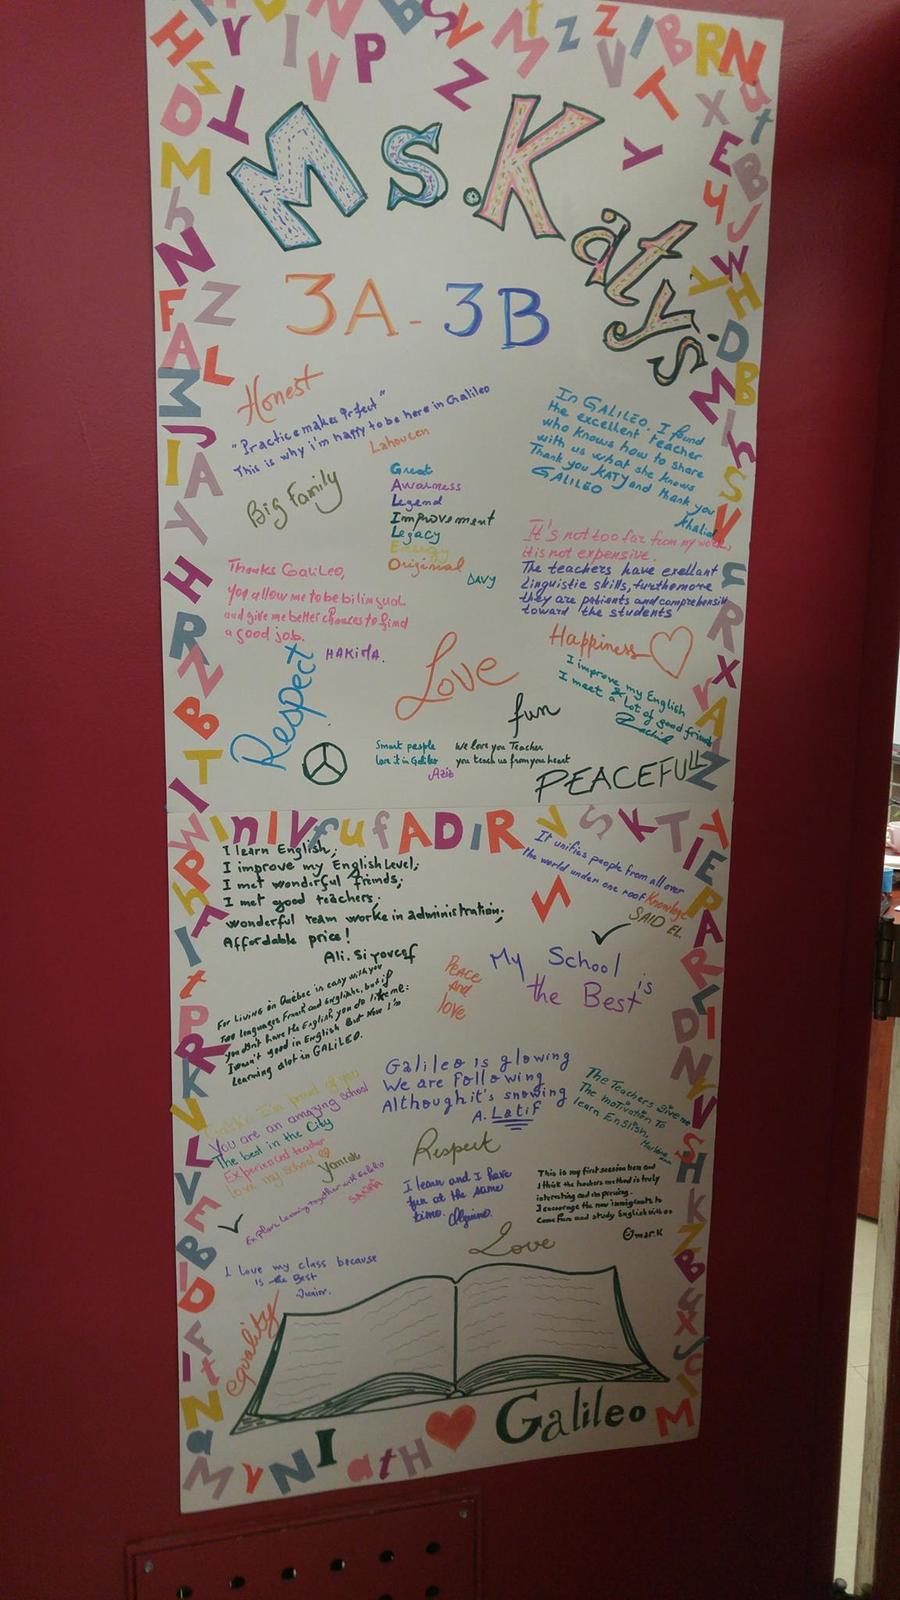 Ms. Katy's
3A - 3B
Honest
"Practice makes Prfect"
This is why i'm happy to be here in Galileo
Lahoucen
Big Family
Great
Awarness
Legend
Improvement
Legacy
Energy
Original
DAVY
In GALILEO. I found
the excellent teacher
who knows how to share
with us what she knows
Thank you KATY and thank you
GALILEO
Khalid
It's not too far from my work,
it is not expensive.
The teachers have exellant
linguistic skills, furthemore
they are patients and comprehensive
toward the students
Thanks GaliLeo,
you allow me to be bilingual
and give me better chances to find
a good job.
HAKIMA.
Respect
Love
Happiness
I improve my English
I meet a lot of good friends
Rachid
fun
Smart people
love it in Galileo
Aziz
We love you Teacher
you teach us from your heart
PEACEFULL
I learn English;
I improve my English Level;
I met wonderful friends;
I met good teachers;
wonderful team worke in administration;
Affordable price!
Ali. Si youcef
It unifies people from all over
the world under one roof Knowledge
SAID EL.
My School is
the Best
Peace
And
love
For Living in Québec in easy with you
Too languages French and Englishe, but if
you don't have the English you do like me:
I wasn't good in English But Now I'm
Learning alot in GALILEO.
Galileo is glowing
We are following
Although it's snowing
A. Latif
The Teachers give me
The motivation To
learn English.
Galileo I'm proud of you
You are an amazing school
The best in the City
Experienced teacher
love my school
Yanick
Explore Learning together with Galileo
SANAA
Respect
I learn and I have
fun at the same
time.
This is my first session here and
I think the teachers method is truly
interesting and improving.
I encourage the new immigrants to
come here and study English with os
Omar.K
Love
I love my class because
is the Best
Junior.
equality
I ❤ Galileo